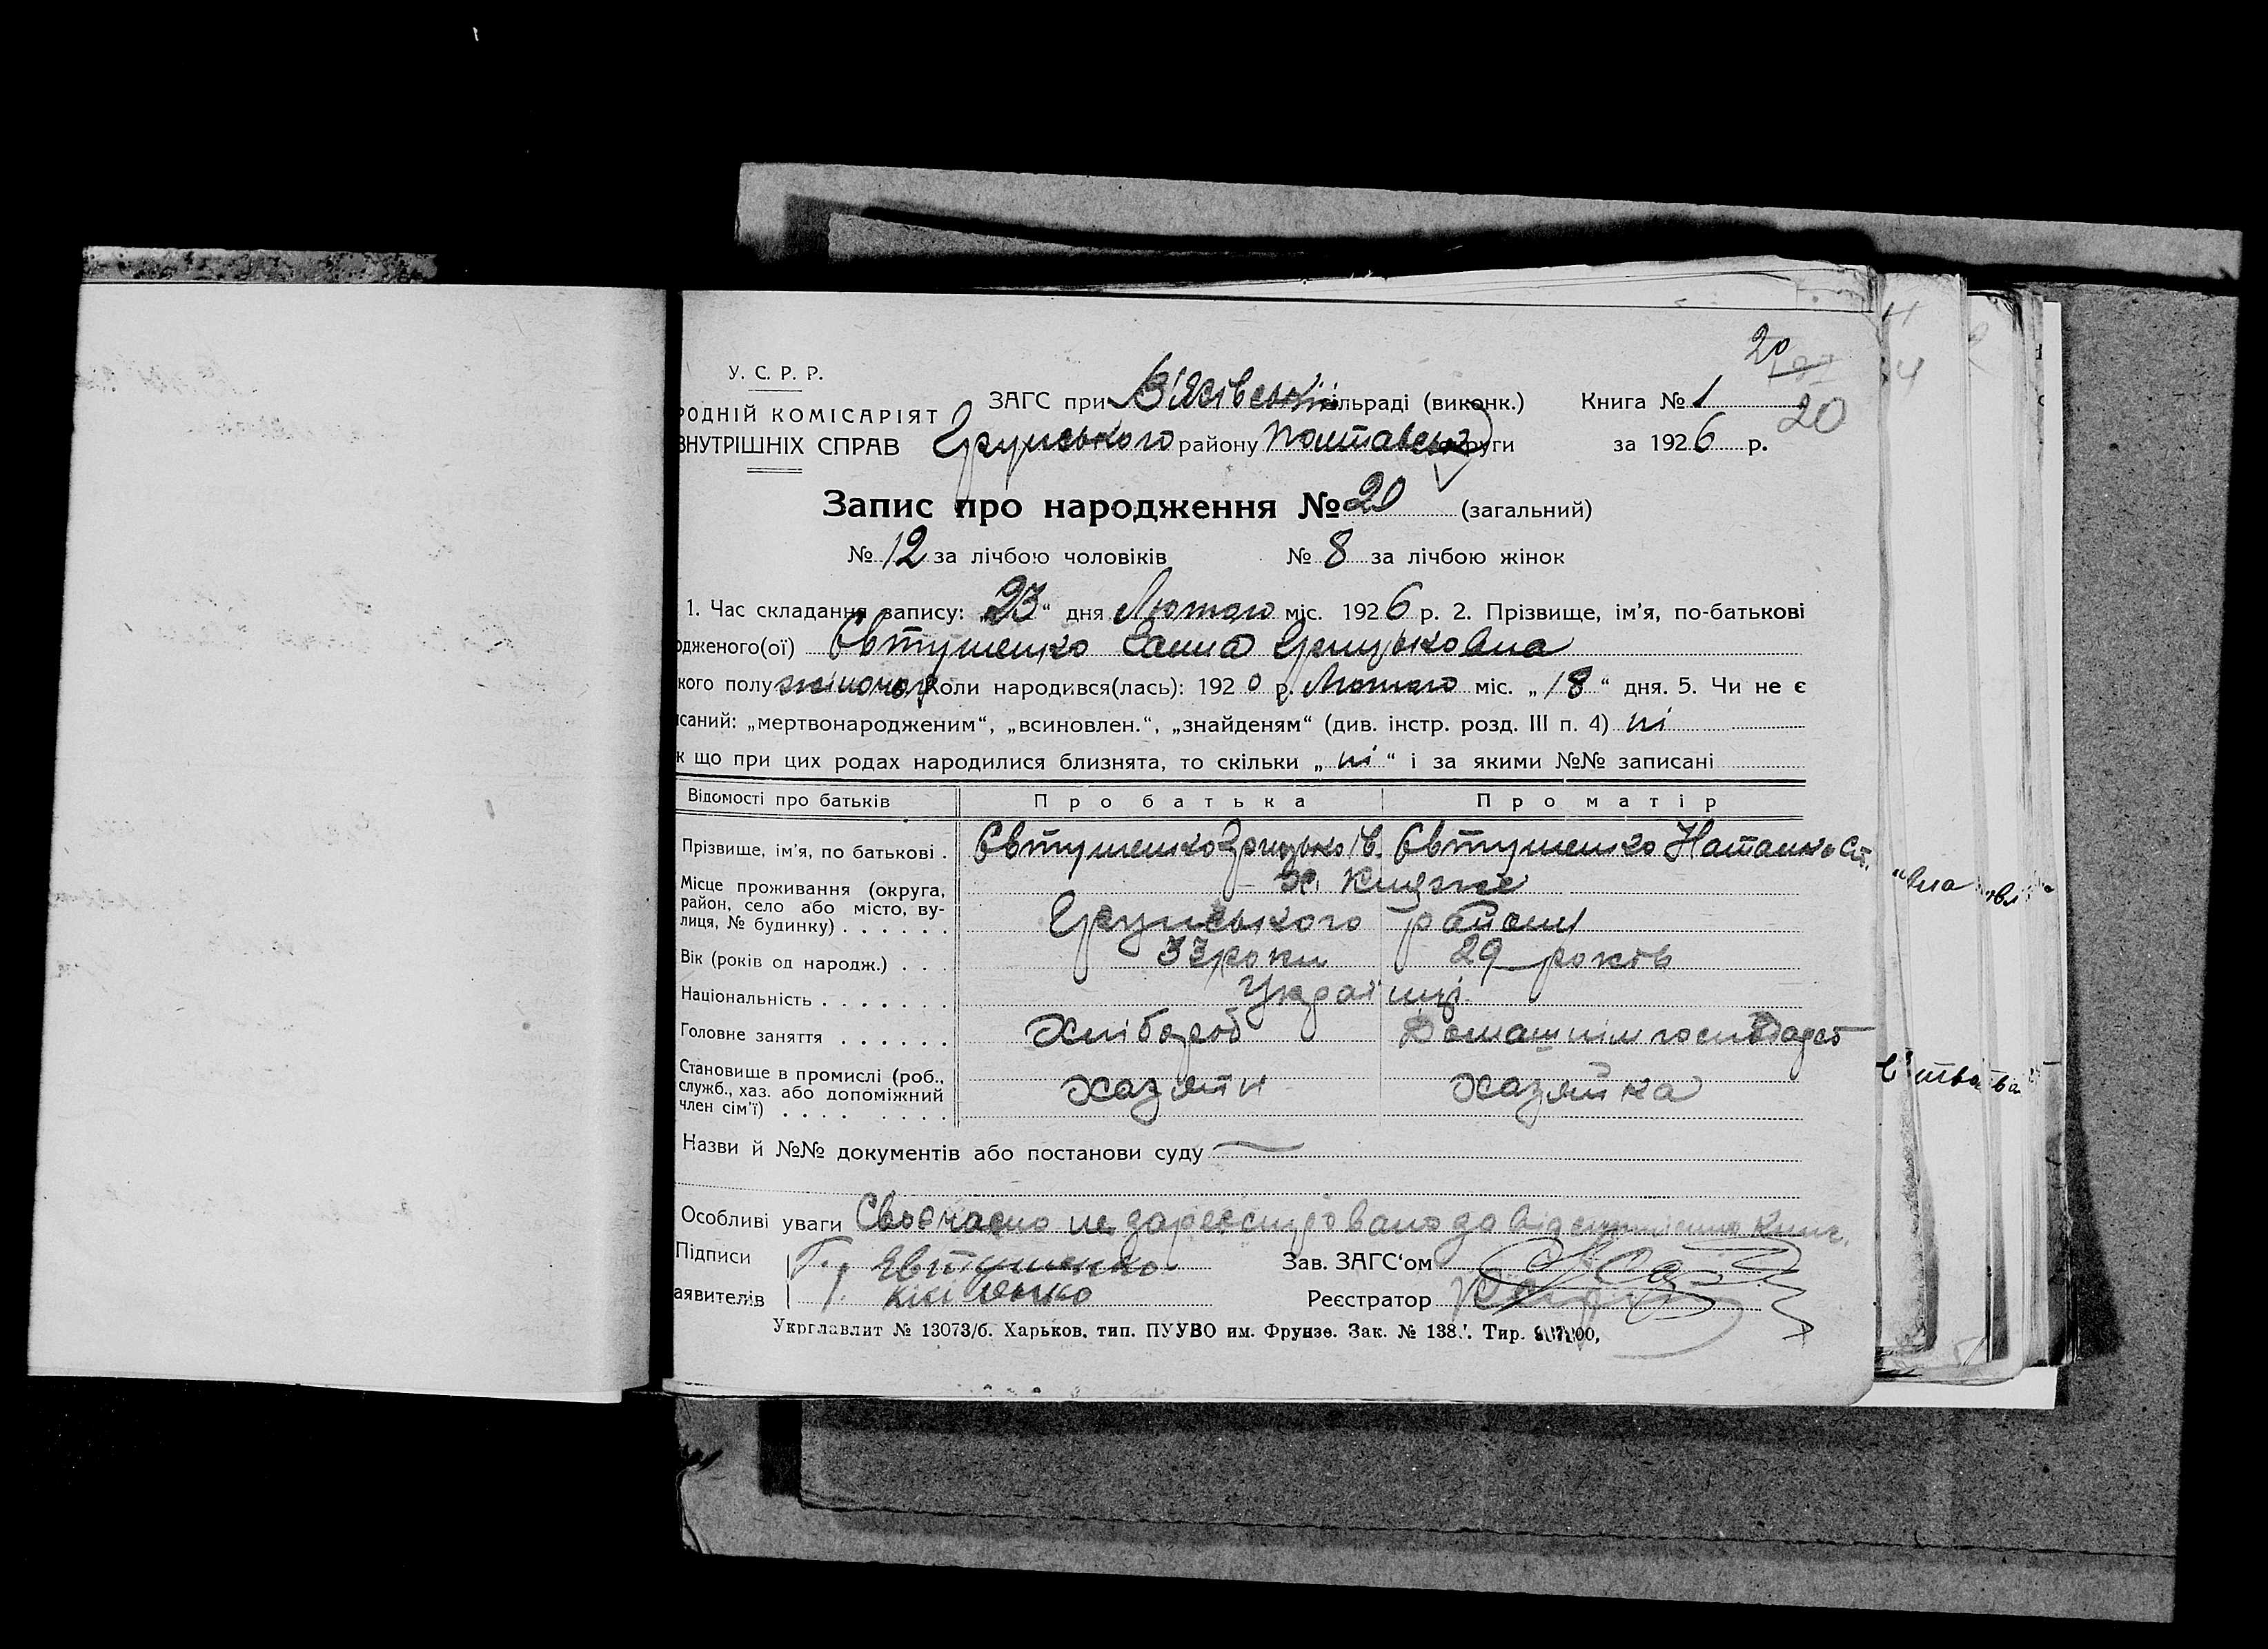 20
У. С. Р. Р.
ЗАГС при В'язівській сільраді (виконк.) Книга № 1
20
РОДНІЙ КОМІСАРІЯТ
ВНУТРІШНІХ СПРАВ Грунського району Полтавськ округи за 1926 р.
Запис про народження № 20 (загальний)
№ 12 за лічбою чоловіків № 8 за лічбою жінок
1. Час складання запису: „23“ дня Лютого міс. 1926 р. 2. Прізвище, ім'я, по-батькові
одженого(ої) Євтушенко Ганна Грицьковна
кого полу жіночого Коли народився(лась): 1920 р. Лютого міс. „18“ дня. 5. Чи не є
исаний: „мертвонародженим“, „всиновлен.“, „знайденям“ (див. інстр. розд. III п. 4) ні
к що при цих родах народилися близнята, то скільки „ні“ і за якими №№ записані
Відомості про батьків Про батька Про матір
Прізвище, ім'я, по батькові . Євтушенко Грицько Ів. Євтушенко Наталка Ст.
Місце проживання (округа, х.
район, село або місто, ву-
лиця, № будинку) . . . . . . Грунського району
Вік (років од народж.) . . . 33 роки 29 років
Національність . . . . . . . Українці
Головне заняття . . . . . . Хлібороб Домашнім господарст
Становище в промислі (роб.,
служб., хаз. або допоміжний хазяїн хазяйка
член сім'ї) . . . . . . . .
Назви й №№ документів або постанови суду —
Особливі уваги Своєчасно не зареєстровано за відсутністю книг.
Підписи Г. Явтушенко Зав. ЗАГС'ом
аявителів Реєстратор
Укрглавлит № 13073/б. Харьков, тип. ПУУВО им. Фрунзе. Зак. № 138 Тир.